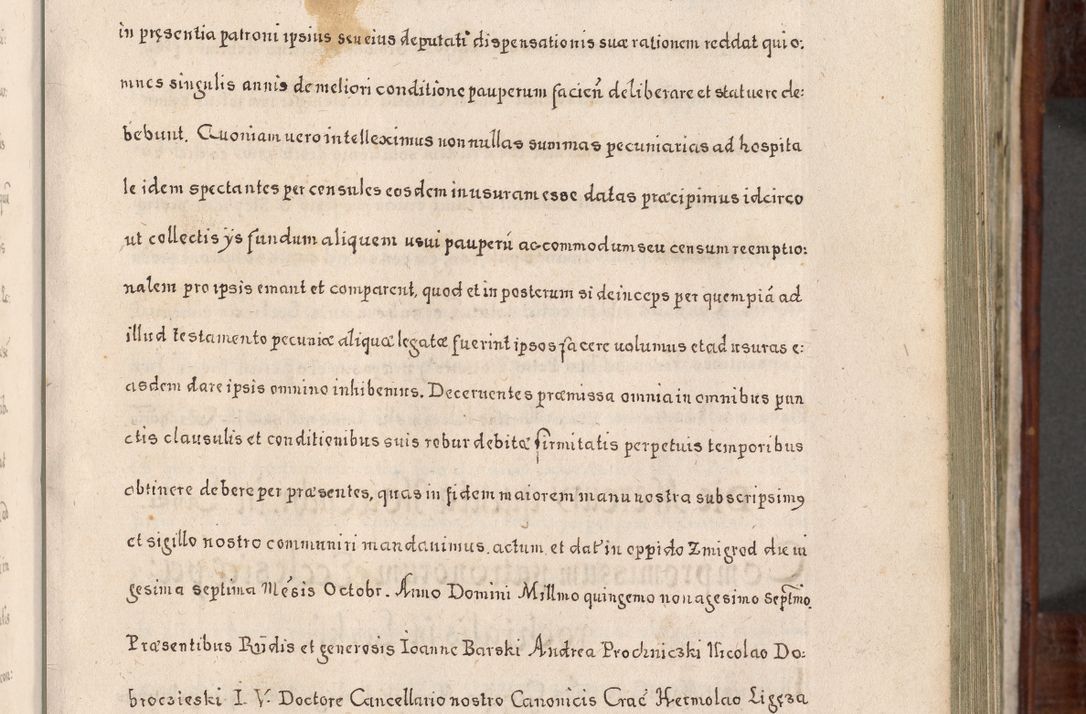 in pręsentia patroni ipsius seu eius deputati dispensationis suæ rationem reddat qui o:
mnes singulis annis de meliori conditione pauperum facień deliberare et statuere de:
bebunt. Quoniam uero intelleximus non nullas summas pecuniarias ad hospita
le idem spectantes per consules eosdem in usuram esse datas præcipimus idcirco
ut collectis ijs fundum aliquem usui pauperū accommodum seu censum reemptio:
nalem pro ipsis emant et comparent, quod et in posterum si deinceps per quempiā ad
illud testamento pecuniæ aliquæ legatæ fuerint ipsos facere uolumus et ad usuras e:
asdem dare ipsis omnino inhibemus. Decernentes præmissa omnia in omnibus pun
ctis clausulis et conditionibus suis robur debitæ firmitatis perpetuis temporibus
obtinere debere per præsentes, quas in fidem maiorem manu nostra subscripsimꝰ
et sigillo nostro communiri mandauimus. actum et dat in oppido Zmigrod die ui
gesima septima Mēsis Octobr. Anno Domini Millmo quingemo nonagesimo Septimo.
Præsentibus Rndis et generosis Ioanne Barski Andrea Prochniczki Nicolao Do:
broczieski I. V. Doctore Cancellario nostro Canonicis Crac Hermolao Ligęza